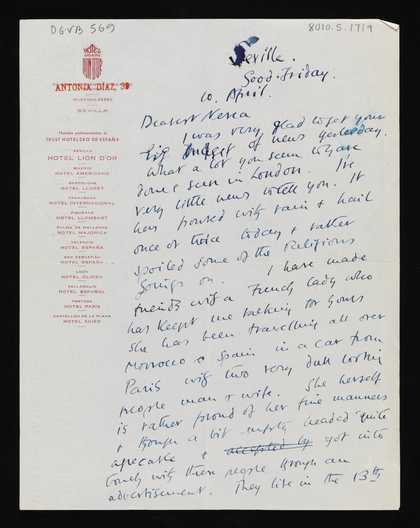 DGVB 569
8010.5.1719
ANTONIA DIAZ, 39
SEVILLA
TRUST HOTELERO DE ESPAÑA
SEVILLA
HOTEL LION D'OR
HOTEL AMERICANO
BARCELONA
HOTEL LLORET
HOTEL INTERNACIONAL
HOTEL LLOMBART
PALMA DE MALLORCA
HOTEL MAJORICA
VALENCIA
HOTEL ESPAÑA
SAN SEBASTIAN
HOTEL ESPAÑA
LEON
HOTEL OLIDEN
VALLADOLID
HOTEL ESPAÑOL
TORTOSA
HOTEL PARIS
CASTELLON DE LA PLANA
HOTEL SUIZO
Seville.
Good Friday.
10. April.
Dearest Nessa
I was very glad to get your
big budget of news yesterday.
What a lot you seem to have
done & seen in London. I've
very little news to tell you. It
has poured with rain & hail
once or twice today & rather
spoiled some of the religious
goings on. I have made
friends with a French lady who
has kept me talking for hours
She has been travelling all over
Morrocco & Spain in a car from
Paris with two very dull looking
people man & wife. She herself
is rather proud of her fine manners
& though a bit empty headed quite
agreeable & accepted by got into
touch with these people through an
advertisement. They live in the 13th